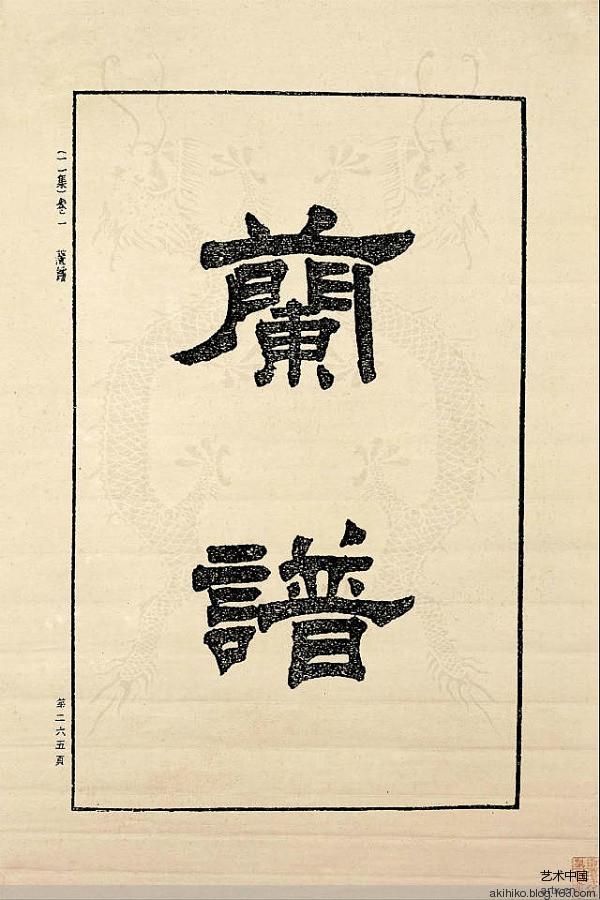 蘭譜
(二集)卷一 蘭譜
第二六五頁
艺术中国
artx.cn
akihiko.blog.163.com